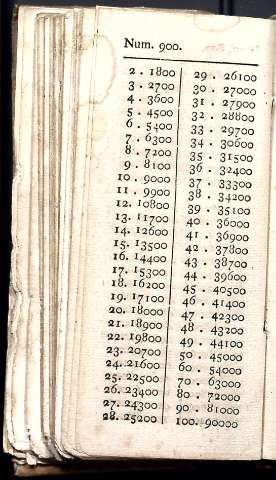 Num. 900.
2 . 1800
3 . 2700
4 . 3600
5 . 4500
6 . 5400
7 . 6300
8 . 7200
9 . 8100
10 . 9000
11 . 9900
12. 10800
13. 11700
14. 12600
15. 13500
16. 14400
17. 15300
18. 16200
19. 17100
20. 18000
21. 18900
22. 19800
23. 20700
24. 21600
25. 22500
26. 23400
27. 24300
28. 25200
29 . 26100
30 . 27000
31 . 27900
32 . 28800
33 . 29700
34 . 30600
35 . 31500
36 . 32400
37 . 33300
38 . 34200
39 . 35100
40 . 36000
41 . 36900
42 . 37800
43 . 38700
44 . 39600
45 . 40500
46 . 41400
47 . 42300
48 . 43200
49 . 44100
50 . 45000
60 . 54000
70 . 63000
80 . 72000
90 . 81000
100. 90000